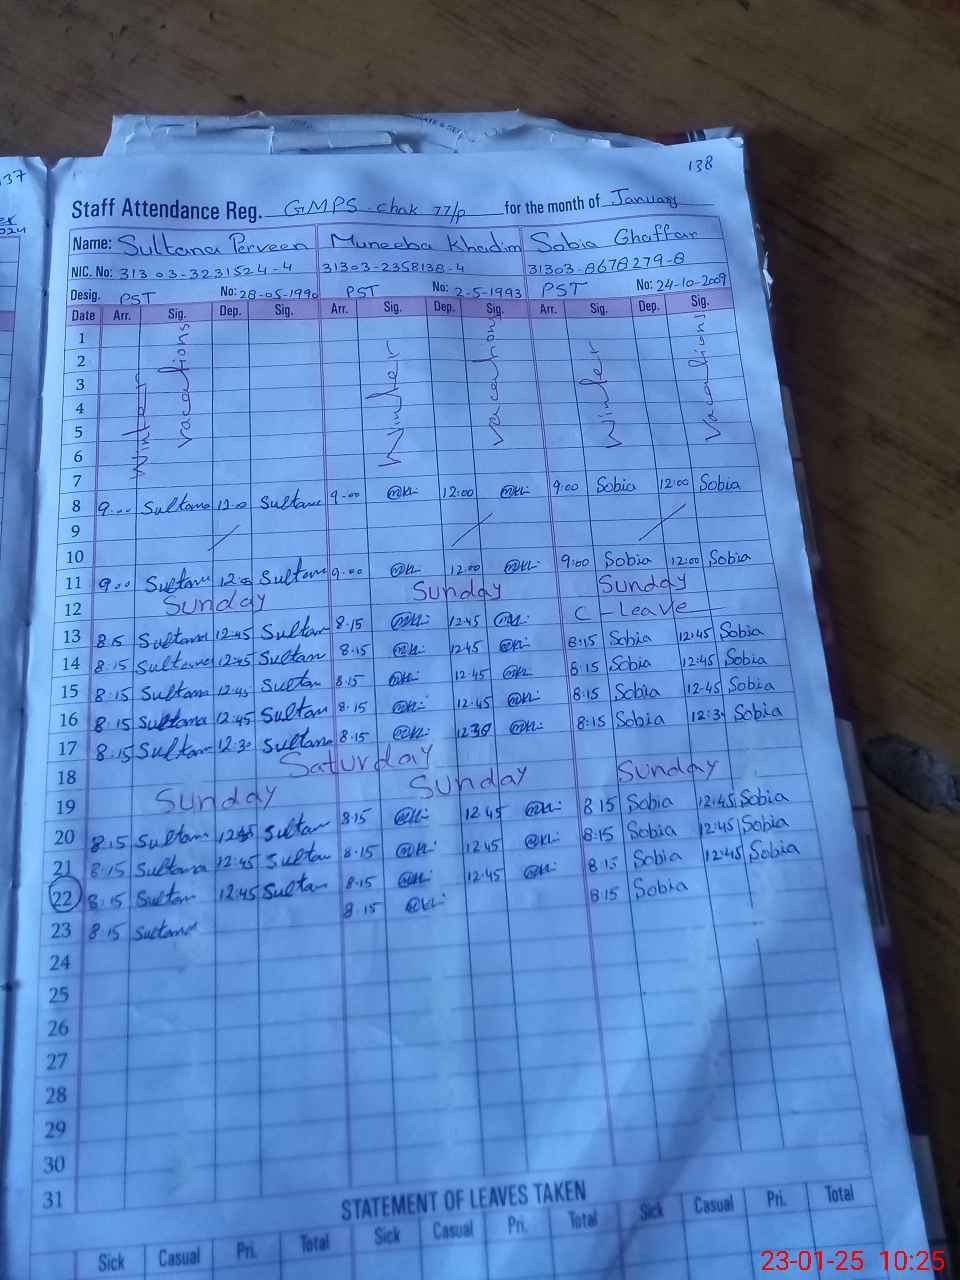 138
37
Staff Attendance Reg. GMPS chak 77/p for the month of January
Name: Sultana Perveen Muneeba Khadim Sobia Ghaffar
NIC. No: 31303-3231524-4 31303-2358138-4 31303-8678279-8
Desig. PST No: 28-05-1990 PST No: 2-5-1993 PST No: 24-10-2009
Date Arr. Sig. Dep. Sig. Arr. Sig. Dep. Sig. Arr. Sig. Dep. Sig.
Winter vacations Winter vacations Winter vacations
1
2
3
4
5
6
7
8 9:00 Sultana 12:0 Sultana 9:00 12:00 9:00 Sobia 12:00 Sobia
9
10
11 9:00 Sultana 12:0 Sultana 9:00 12:00 9:00 Sobia 12:00 Sobia
12 Sunday Sunday Sunday
13 8:15 Sultana 12:45 Sultan 8:15 12:45 C - Leave
14 8:15 Sultana 12:45 Sultan 8:15 12:45 8:15 Sobia 12:45 Sobia
15 8:15 Sultana 12:45 Sultan 8:15 12:45 8:15 Sobia 12:45 Sobia
16 8:15 Sultana 12:45 Sultan 8:15 12:45 8:15 Sobia 12:45 Sobia
17 8:15 Sultan 12:30 Sultana 8:15 1230 8:15 Sobia 12:30 Sobia
18 Saturday
19 Sunday Sunday Sunday
20 8:15 Sultan 12:45 Sultan 8:15 12:45 8:15 Sobia 12:45 Sobia
21 8:15 Sultana 12:45 Sultan 8:15 12:45 8:15 Sobia 12:45 Sobia
22 8:15 Sultan 12:45 Sultan 8:15 12:45 8:15 Sobia 12:45 Sobia
23 8:15 Sultana 8:15 8:15 Sobia
24
25
26
27
28
29
30
31
STATEMENT OF LEAVES TAKEN
Sick Casual Pri. Total Sick Casual Pri. Total Sick Casual Pri. Total
23-01-25 10:25